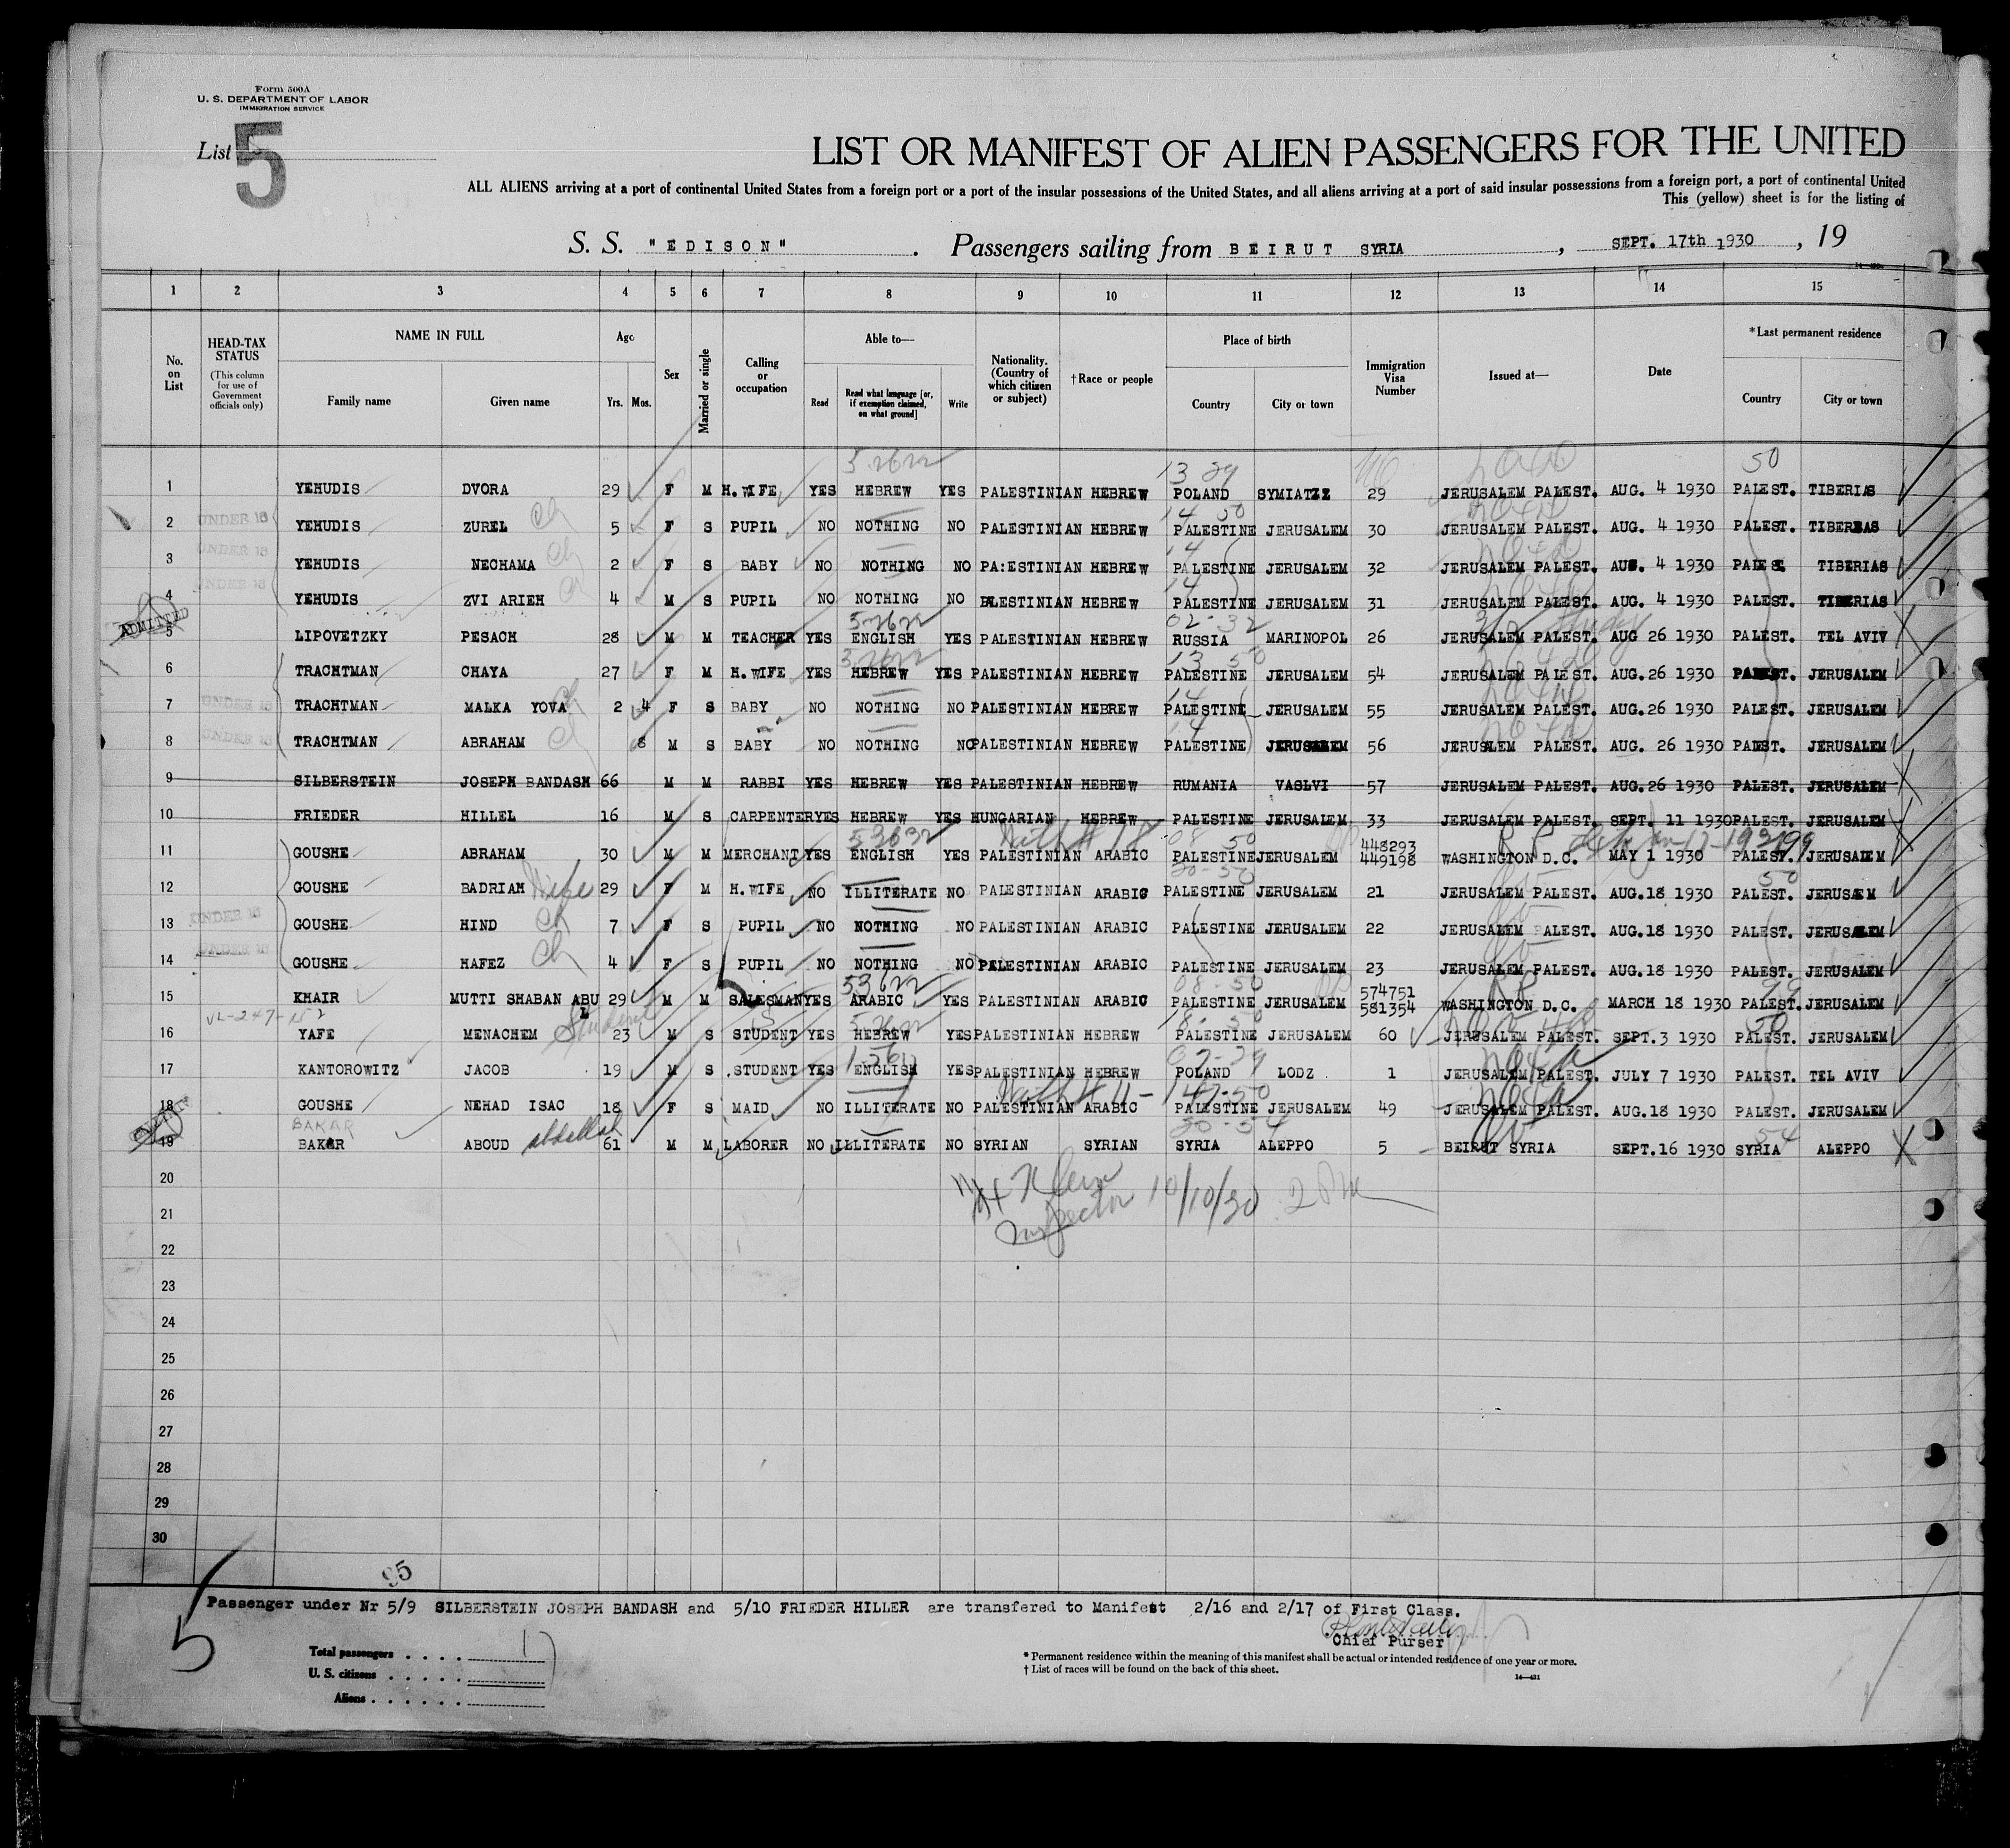 Form 500A
U. S. DEPARTMENT OF LABOR
IMMIGRATION SERVICE
List 5
LIST OR MANIFEST OF ALIEN PASSENGERS FOR THE UNITED
ALL ALIENS arriving at a port of continental United States from a foreign port or a port of the insular possessions of the United States, and all aliens arriving at a port of said insular possessions from a foreign port, a port of continental United
This (yellow) sheet is for the listing of
S. S. "EDISON". Passengers sailing from BEIRUT SYRIA, SEPT. 17th 1930, 19
1 2 3 4 5 6 7 8 9 10 11 12 13 14 15
No. on List
HEAD-TAX STATUS (This column for use of Government officials only)
NAME IN FULL
Family name Given name
Age Yrs. Mos.
Sex
Married or single
Calling or occupation
Able to— Read Read what language [or, if exemption claimed, on what ground] Write
Nationality. (Country of which citizen or subject)
†Race or people
Place of birth Country City or town
Immigration Visa Number
Issued at—
Date
*Last permanent residence Country City or town
1 YEHUDIS DVORA 29 F M H. WIFE YES HEBREW YES PALESTINIAN HEBREW POLAND SYMIATZZ 29 JERUSALEM PALEST. AUG. 4 1930 PALEST. TIBERIAS
2 UNDER 16 YEHUDIS ZUREL ch 5 F S PUPIL NO NOTHING NO PALESTINIAN HEBREW PALESTINE JERUSALEM 30 JERUSALEM PALEST. AUG. 4 1930 PALEST. TIBERBAS
3 UNDER 16 YEHUDIS NECHAMA ch 2 F S BABY NO NOTHING NO PA:ESTINIAN HEBREW PALESTINE JERUSALEM 32 JERUSALEM PALEST. AUG. 4 1930 PALEST TIBERIAS
4 UNDER 16 YEHUDIS ZVI ARIEH ch 4 M S PUPIL NO NOTHING NO PALESTINIAN HEBREW PALESTINE JERUSALEM 31 JERUSALEM PALEST. AUG. 4 1930 PALEST. TIBERIAS
ADMITTED
5 LIPOVETZKY PESACH 28 M M TEACHER YES ENGLISH YES PALESTINIAN HEBREW RUSSIA MARINOPOL 26 JERUSALEM PALEST. AUG 26 1930 PALEST. TEL AVIV
6 TRACHTMAN CHAYA 27 F M H. WIFE YES HEBREW YES PALESTINIAN HEBREW PALESTINE JERUSALEM 54 JERUSALEM PALEST. AUG. 26 1930 PALEST. JERUSALEM
7 UNDER 16 TRACHTMAN MALKA YOVA ch 2 4 F S BABY NO NOTHING NO PALESTINIAN HEBREW PALESTINE JERUSALEM 55 JERUSALEM PALEST. AUG. 26 1930 PALEST. JERUSALEM
8 UNDER 16 TRACHTMAN ABRAHAM ch 8 M S BABY NO NOTHING NO PALESTINIAN HEBREW PALESTINE JERUSALEM 56 JERUSALEM PALEST. AUG. 26 1930 PALEST. JERUSALEM
9 SILBERSTEIN JOSEPH BANDASH 66 M M RABBI YES HEBREW YES PALESTINIAN HEBREW RUMANIA VASLVI 57 JERUSALEM PALEST. AUG. 26 1930 PALEST. JERUSALEM
10 FRIEDER HILLEL 16 M S CARPENTER YES HEBREW YES HUNGARIAN HEBREW PALESTINE JERUSALEM 33 JERUSALEM PALEST. SEPT. 11 1930 PALEST. JERUSALEM
11 GOUSHE ABRAHAM 30 M M MERCHANT YES ENGLISH YES PALESTINIAN ARABIC PALESTINE JERUSALEM 448293 449198 WASHINGTON D.C. MAY 1 1930 PALEST. JERUSALEM
12 GOUSHE BADRIAH Wife 29 F M H. WIFE NO ILLITERATE NO PALESTINIAN ARABIC PALESTINE JERUSALEM 21 JERUSALEM PALEST. AUG. 18 1930 PALEST. JERUSAEM
13 UNDER 16 GOUSHE HIND ch 7 F S PUPIL NO NOTHING NO PALESTINIAN ARABIC PALESTINE JERUSALEM 22 JERUSALEM PALEST. AUG. 18 1930 PALEST. JERUSALEM
14 UNDER 16 GOUSHE HAFEZ ch 4 F S PUPIL NO NOTHING NO PALESTINIAN ARABIC PALESTINE JERUSALEM 23 JERUSALEM PALEST. AUG. 18 1930 PALEST. JERUSALEM
15 KHAIR MUTTI SHABAN ABU 29 M M SALESMAN YES ARABIC YES PALESTINIAN ARABIC PALESTINE JERUSALEM 574751 581354 WASHINGTON D.C. MARCH 18 1930 PALEST. JERUSALEM
16 YAFE MENACHEM Student 23 M S STUDENT YES HEBREW YES PALESTINIAN HEBREW PALESTINE JERUSALEM 60 JERUSALEM PALEST. SEPT. 3 1930 PALEST. JERUSALEM
17 KANTOROWITZ JACOB 19 M S STUDENT YES ENGLISH YES PALESTINIAN HEBREW POLAND LODZ 1 JERUSALEM PALEST. JULY 7 1930 PALEST. TEL AVIV
18 GOUSHE NEHAD ISAC 18 F S MAID NO ILLITERATE NO PALESTINIAN ARABIC PALESTINE JERUSALEM 49 JERUSALEM PALEST. AUG. 18 1930 PALEST. JERUSALEM
BAKAR
19 BAKAR ABOUD abdallah 61 M M LABORER NO ILLITERATE NO SYRIAN SYRIAN SYRIA ALEPPO 5 BEIRUT SYRIA SEPT. 16 1930 SYRIA ALEPPO
20
Inspector 10/10/30 2 PM
21
22
23
24
25
26
27
28
29
30
95
Passenger under Nr 5/9 SILBERSTEIN JOSEPH BANDASH and 5/10 FRIEDER HILLER are transfered to Manifest 2/16 and 2/17 of First Class.
Chief Purser
5
Total passengers . . . . 17
U. S. citizens . . . . .
Aliens . . . . . .
* Permanent residence within the meaning of this manifest shall be actual or intended residence of one year or more.
† List of races will be found on the back of this sheet.
14—421